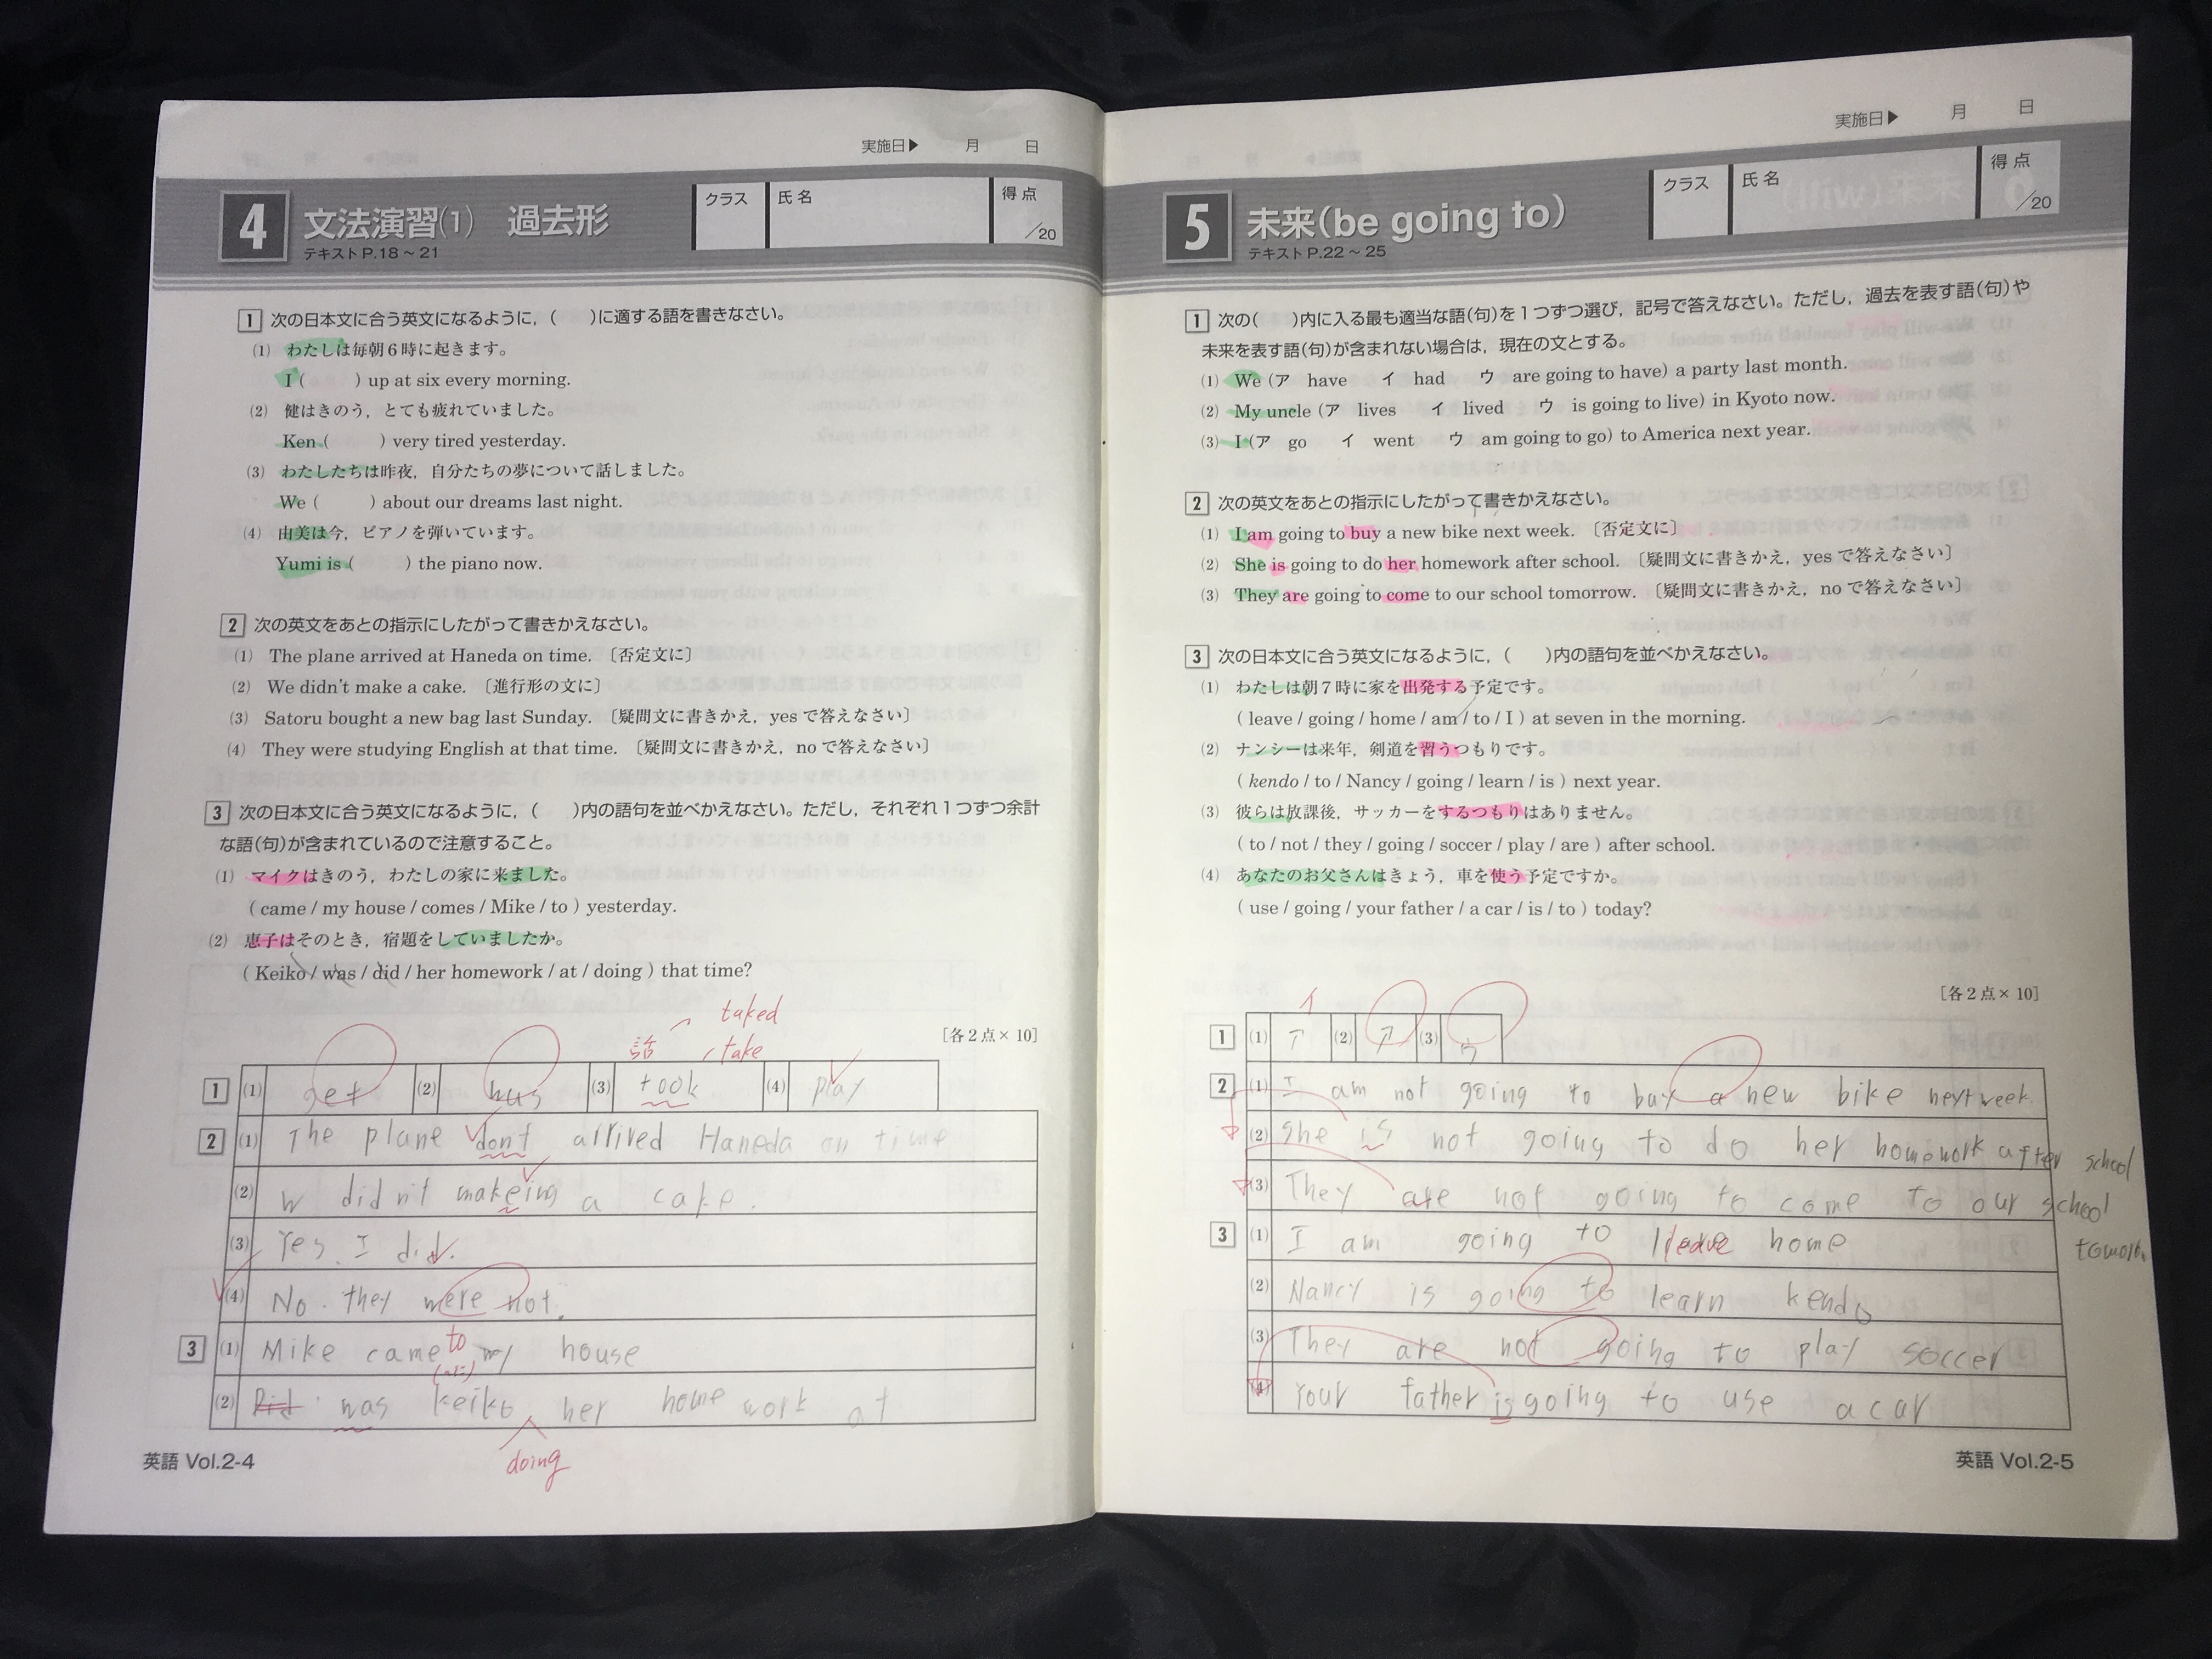 実施日▶ 月 日
4 文法演習(1) 過去形
テキストP.18～21
クラス 氏名 得点 /20
1 次の日本文に合う英文になるように，( )に適する語を書きなさい。
(1) わたしは毎朝6時に起きます。
I ( ) up at six every morning.
(2) 健はきのう，とても疲れていました。
Ken ( ) very tired yesterday.
(3) わたしたちは昨夜，自分たちの夢について話しました。
We ( ) about our dreams last night.
(4) 由美は今，ピアノを弾いています。
Yumi is ( ) the piano now.
2 次の英文をあとの指示にしたがって書きかえなさい。
(1) The plane arrived at Haneda on time. 〔否定文に〕
(2) We didn't make a cake. 〔進行形の文に〕
(3) Satoru bought a new bag last Sunday. 〔疑問文に書きかえ，yesで答えなさい〕
(4) They were studying English at that time. 〔疑問文に書きかえ，noで答えなさい〕
3 次の日本文に合う英文になるように，( )内の語句を並べかえなさい。ただし，それぞれ1つずつ余計
な語(句)が含まれているので注意すること。
(1) マイクはきのう，わたしの家に来ました。
( came / my house / comes / Mike / to ) yesterday.
(2) 恵子はそのとき，宿題をしていましたか。
( Keiko / was / did / her homework / at / doing ) that time?
taked
[各2点×10]
話 take
1 (1) get (2) was (3) took (4) play
2 (1) The plane don't arrived Haneda on time
(2) W didn't makeing a cake.
(3) Yes. I did.
(4) No. they were not.
3 (1) Mike came to my house
(2) Did was keiko her home work at
doing
英語 Vol.2-4
実施日▶ 月 日
5 未来(be going to)
テキストP.22～25
クラス 氏名 得点 /20
1 次の( )内に入る最も適当な語(句)を1つずつ選び，記号で答えなさい。ただし，過去を表す語(句)や
未来を表す語(句)が含まれない場合は，現在の文とする。
(1) We (ア have イ had ウ are going to have) a party last month.
(2) My uncle (ア lives イ lived ウ is going to live) in Kyoto now.
(3) I (ア go イ went ウ am going to go) to America next year.
2 次の英文をあとの指示にしたがって書きかえなさい。
(1) I am going to buy a new bike next week. 〔否定文に〕
(2) She is going to do her homework after school. 〔疑問文に書きかえ，yesで答えなさい〕
(3) They are going to come to our school tomorrow. 〔疑問文に書きかえ，noで答えなさい〕
3 次の日本文に合う英文になるように，( )内の語句を並べかえなさい。
(1) わたしは朝7時に家を出発する予定です。
( leave / going / home / am / to / I ) at seven in the morning.
(2) ナンシーは来年，剣道を習うつもりです。
( kendo / to / Nancy / going / learn / is ) next year.
(3) 彼らは放課後，サッカーをするつもりはありません。
( to / not / they / going / soccer / play / are ) after school.
(4) あなたのお父さんはきょう，車を使う予定ですか。
( use / going / your father / a car / is / to ) today?
[各2点×10]
イ
1 (1) ア (2) ア (3) ウ
2 (1) I am not going to buy a new bike next week.
(2) She is not going to do her homework after school
(3) They are not going to come to our school
3 (1) I am going to leave home
(2) Nancy is going to learn kendo
(3) They are not going to play soccer
(4) Your father is going to use a car
英語 Vol.2-5